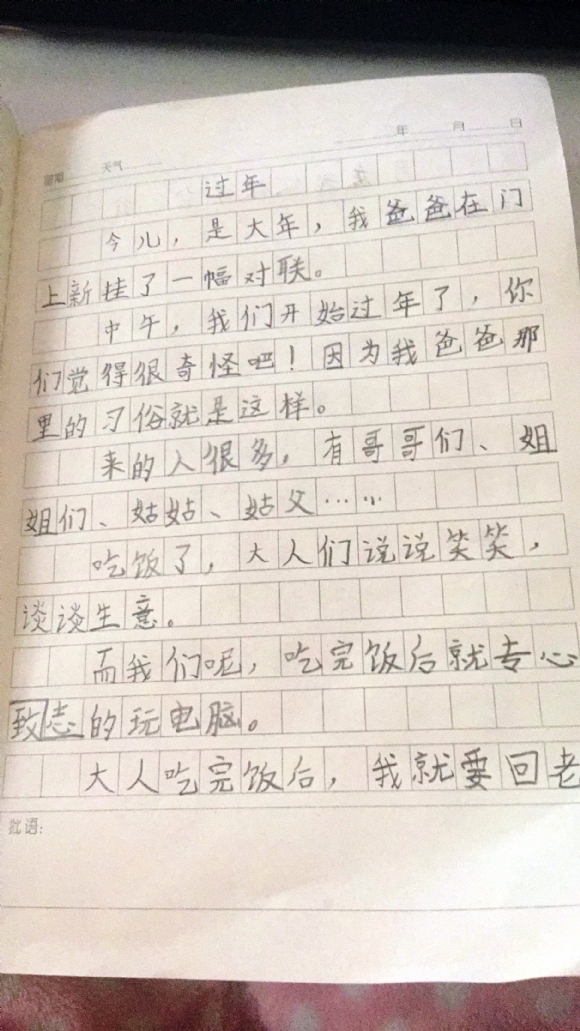 年 月 日
星期 天气
过年
今儿，是大年，我爸爸在门
上新挂了一幅对联。
中午，我们开始过年了，你
们觉得很奇怪吧！因为我爸爸那
里的习俗就是这样。
来的人很多，有哥哥们、姐
姐们、姑姑、姑父……
吃饭了，大人们说说笑笑，
谈谈生意。
而我们呢，吃完饭后就专心
致志的玩电脑。
大人吃完饭后，我就要回老
批语：